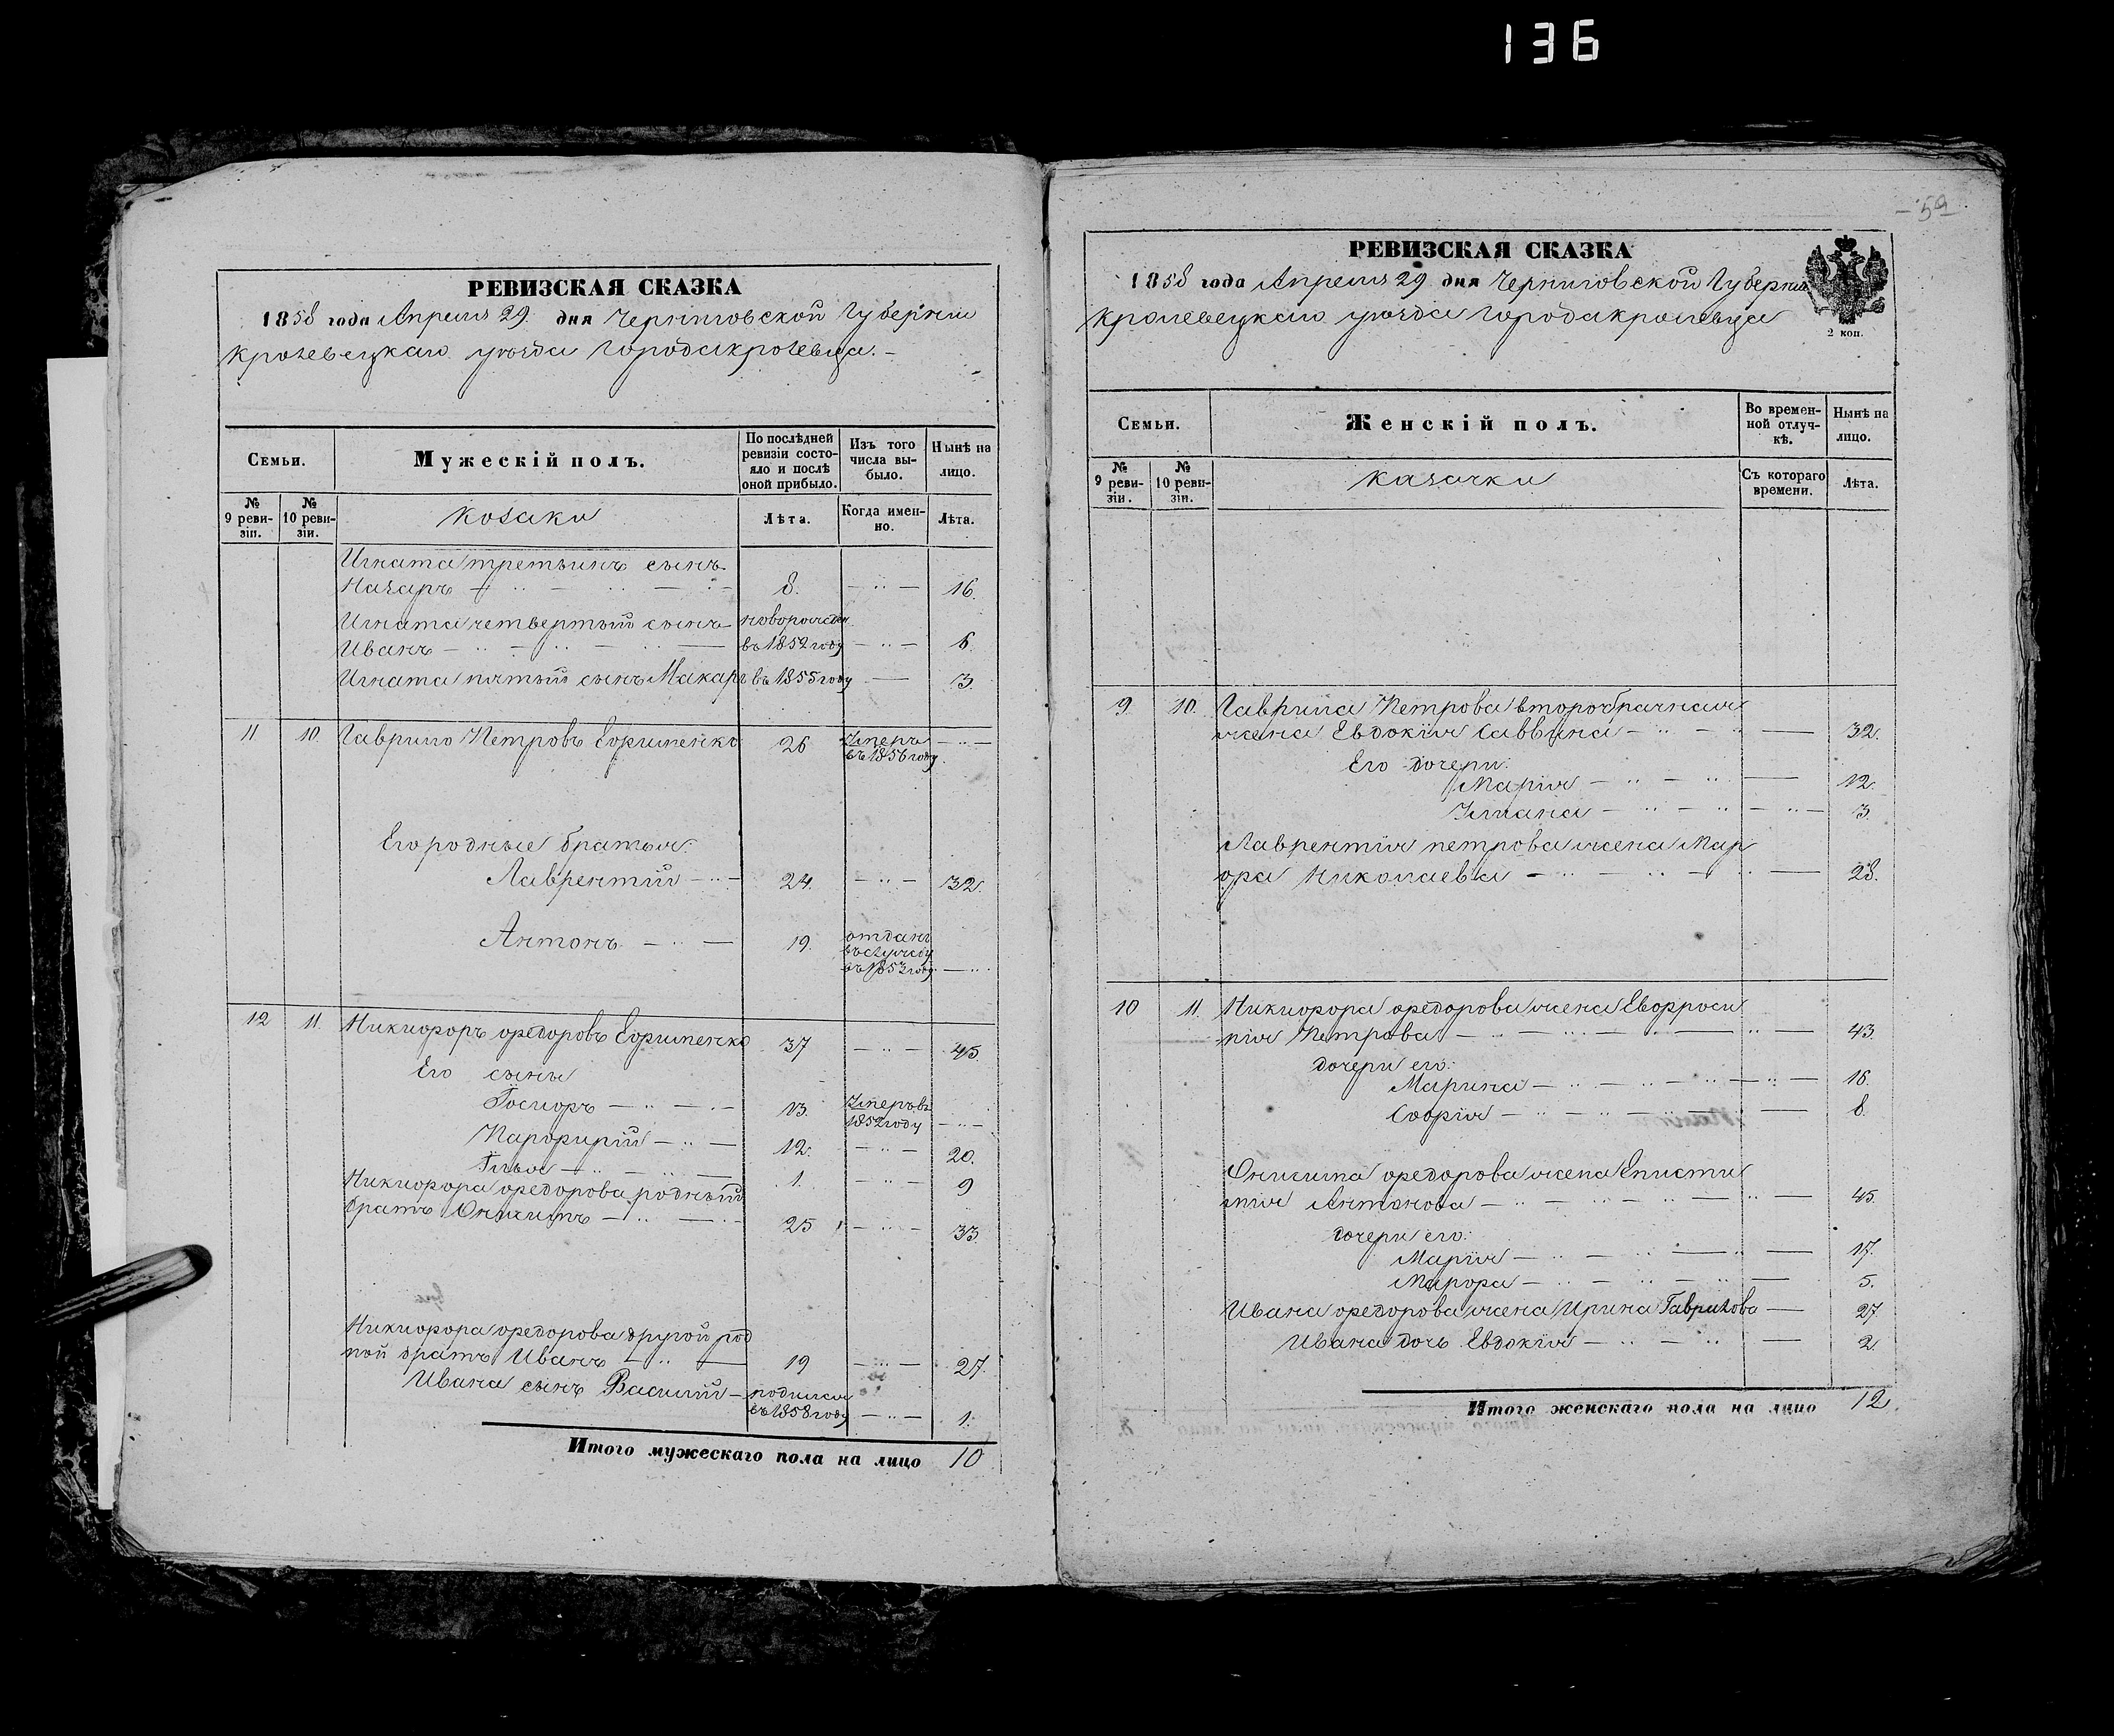 136
РЕВИЗСКАЯ СКАЗКА
1858 года Апреля 29 дня Черниговской Губерніи
Кролевецкаго уѣзда города Кролевца. –
Семьи.
Мужескій полъ.
По послѣдней ревизіи состояло и послѣ оной прибыло.
Изъ того числа выбыло.
Нынѣ на лицо.
№ 9 ревизіи.
№ 10 ревизіи.
Козаки
Лѣта.
Когда именно.
Лѣта.
Игната третьинъ сынъ
Назаръ 8. 16.
Игната четвертый сынъ новорожден
Иванъ въ 1852 году 6.
Игната пятый сынъ Макаръ въ 1855 году 3.
11 10. Гаврило Петровъ Ефименко 26 Умеръ
въ 1856 году
Его родные братья:
Лаврентій 24. 32.
Антонъ 19. отданъ
въ службу
въ 1853 году
12 11. Никифоръ Федоровъ Ефименко 37 45.
Его сыны
Іосифъ 13. Умеръ въ
1852 году
Парфирій 12. 20.
Илья 1. 9
Никифора Федорова родный
братъ Онисимъ 25 33.
Никифора Федорова другой род
ной братъ Иванъ 19 27.
Ивана сынъ Василій родился
въ 1858 году 1.
Итого мужескаго пола на лицо 10
59
РЕВИЗСКАЯ СКАЗКА
1858 года Апреля 29 дня Черниговской Губерніи
Кролевецкаго уѣзда города Кролевца
2 коп.
Семьи.
Женскій полъ.
Во временной отлучкѣ.
Нынѣ на лицо.
№ 9 ревизіи.
№ 10 ревизіи.
Казачки
Съ котораго времени.
Лѣта.
9. 10. Гаврила Петрова второбрачная
жена Евдокія Саввина 32.
Его дочери:
Марія 12.
Ульяна 3.
Лаврентія Петрова жена Мар
фа Николаева 28.
10 11. Никифора Федорова жена Евфроси
нія Петрова 43.
дочери его:
Марина 16.
Софія 8.
Онисима Федорова жена Еписти
мія Антонова 45.
дочери его:
Марія 17.
Марфа 5.
Ивана Федорова жена Ирина Гаврилова 27.
Ивана дочь Евдокія 2.
Итого женскаго пола на лицо 12.